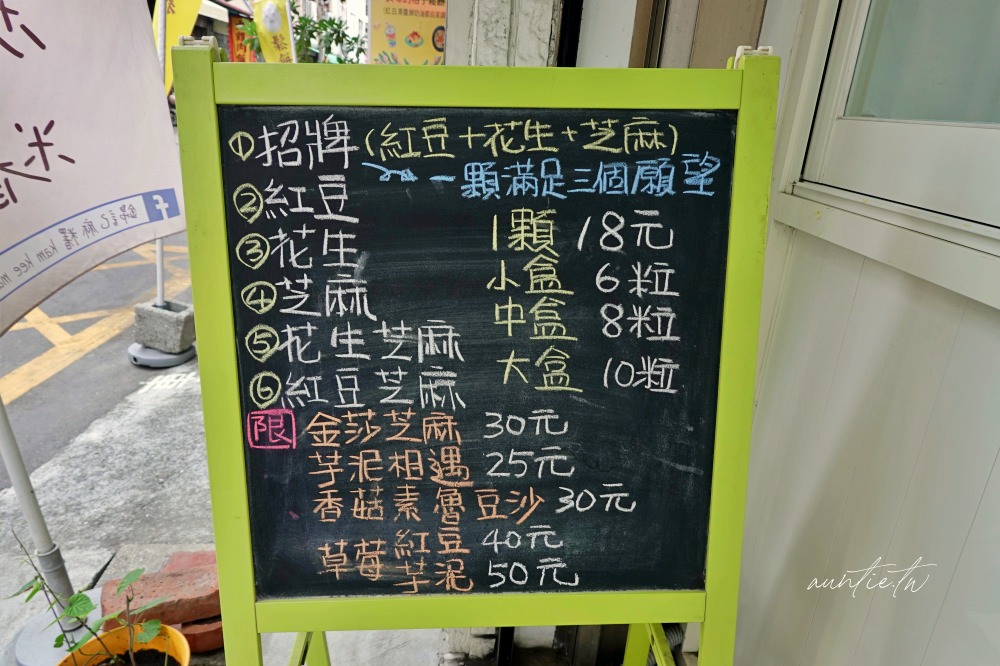 ①招牌(紅豆+花生+芝麻)
一顆滿足三個願望
②紅豆
③花生
④芝麻
⑤花生芝麻
⑥紅豆芝麻
1顆 18元
小盒 6粒
中盒 8粒
大盒 10粒
限 金莎芝麻 30元
芋泥相遇 25元
香菇素魯豆沙 30元
草莓紅豆 40元
芋泥 50元
錦記麻糬 kam kee
auntie.tw